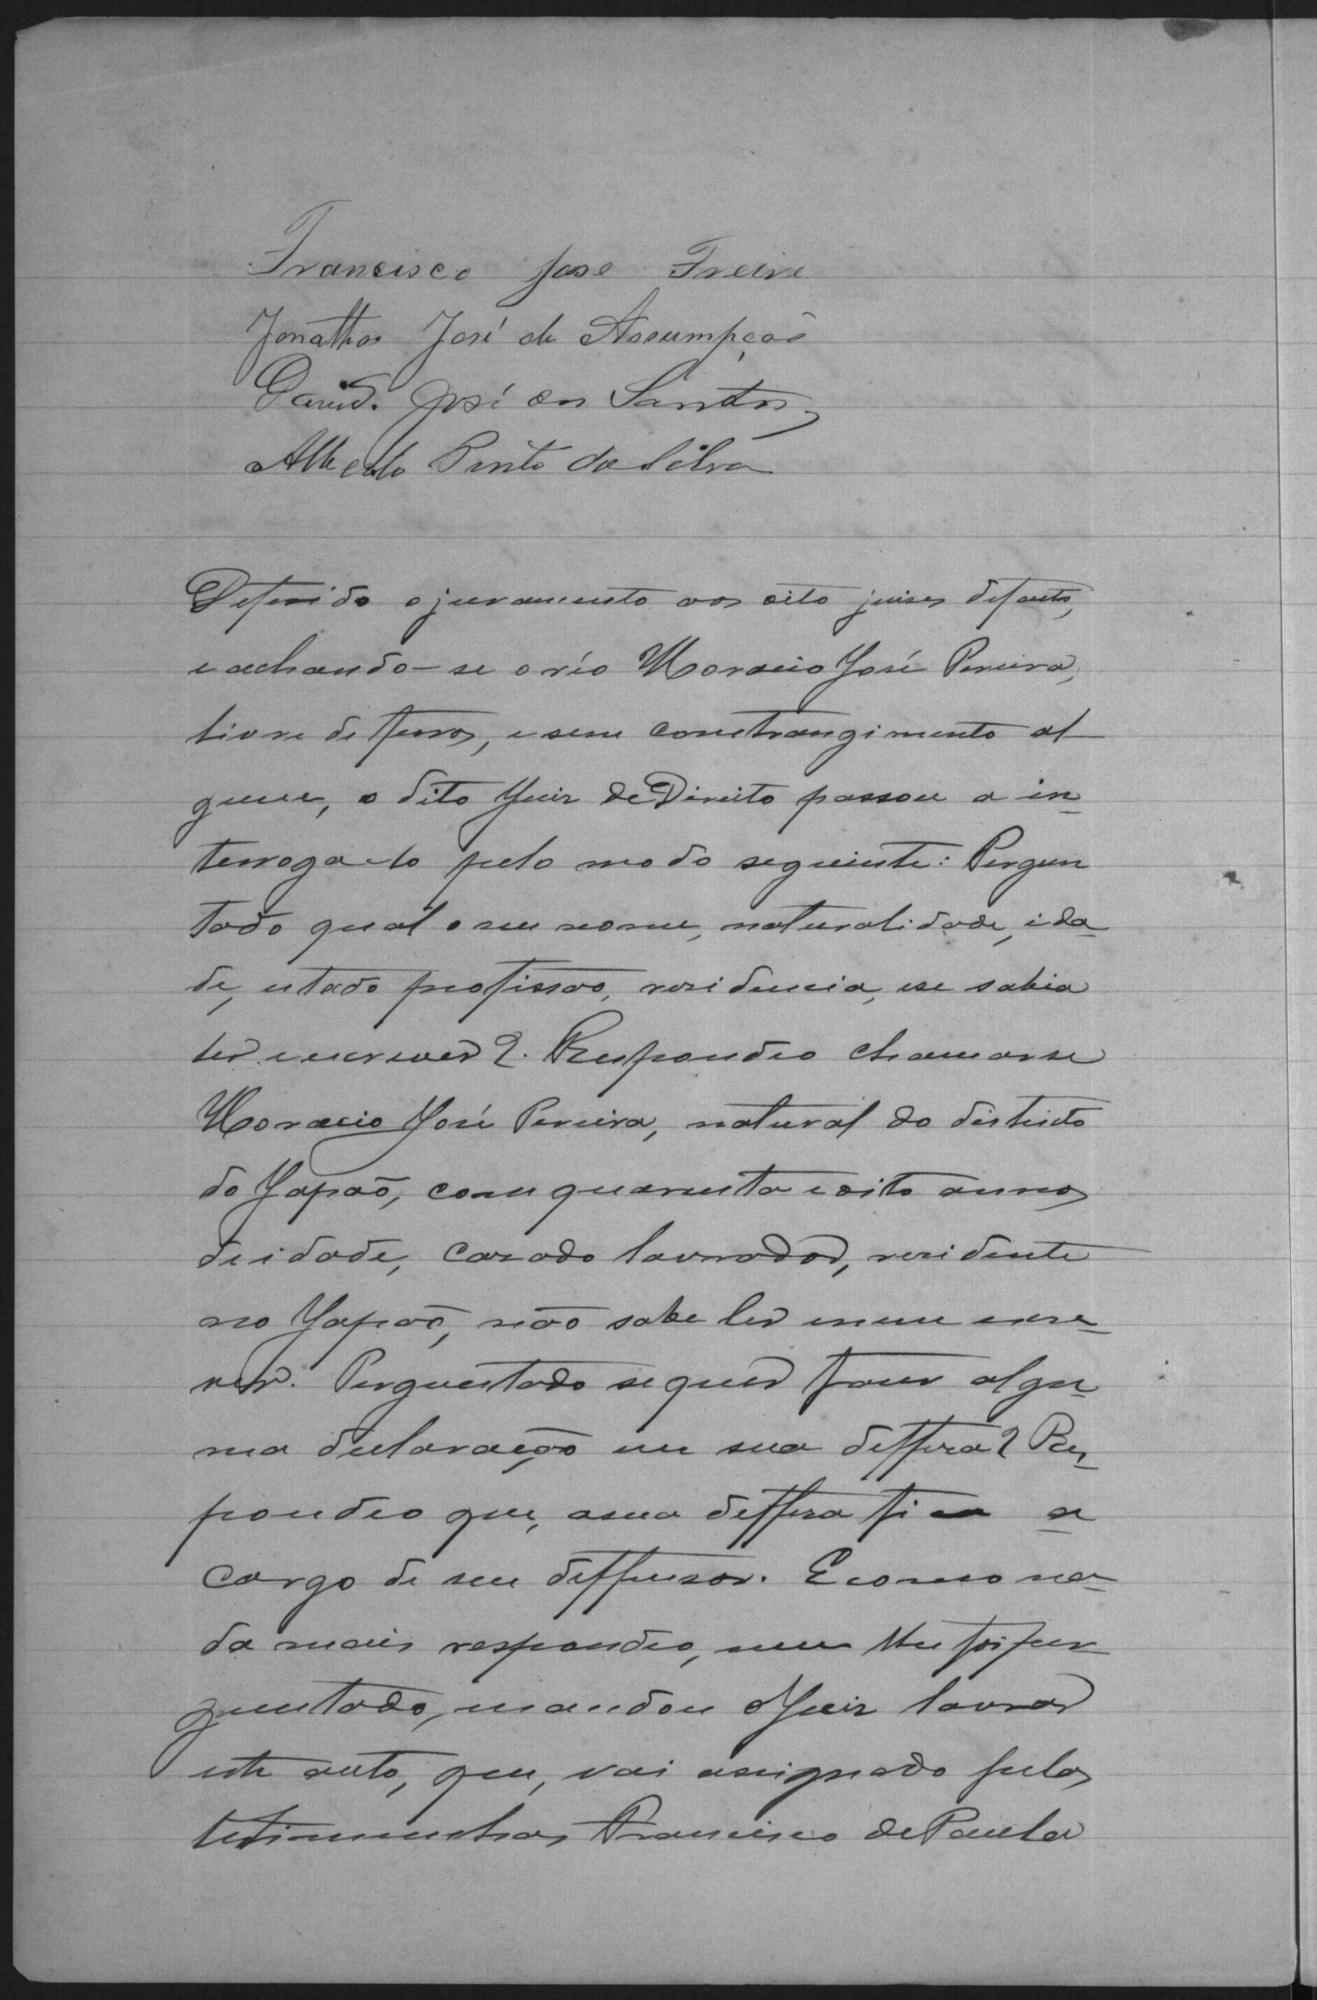 Francisco José Freire
Jonathas José de Assumpção
David José dos Santos
Alberto Pinto da Silva
Deferido o juramento aos oito juises de facto,
e achando-se o réo Horacio José Pereira,
livre de ferros, e sem constrangimento al
gum, o dito Juiz de Direito passou a in
terrogal-o pelo modo seguinte: Pergun
tado qual o seu nome, naturalidade, ida
de, estado profissão, residencia, e se sabia
ler e escrever? Respondeo chamar se
Horacio José Pereira, natural do districto
do Japão, com quarenta e oito annos
de idade, casado lavrador, residente
no Japão, não sabe ler e nem escre
ver. Perguntado se quer fazer algu
ma declaração em sua deffeza? Res
pondeo que, a sua deffeza fica a
cargo de seu deffensor. E como na
da mais respondeo, nem lhe foi per
guntado, mandou o Juiz lavrar
este auto, que, vai assignado pelas
testimunhas Francisco de Paula